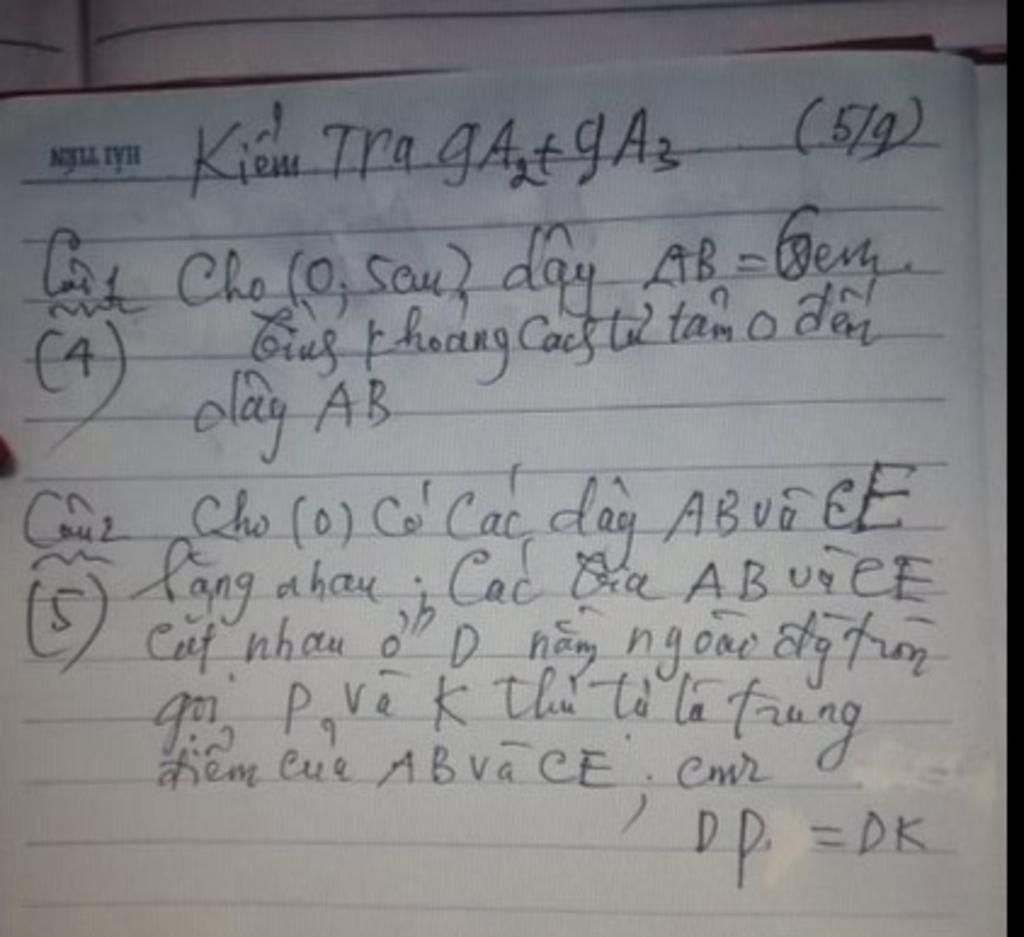 HẢI TIẾN
Kiểm Tra 9A2+9A3 (5/9)
Câu1 Cho (O; 5cm) dây AB =
(4) Tính khoảng cách từ tâm O đến
dây AB
Câu2 Cho (O) có các dây AB và CE
(5) bằng nhau ; Các tia AB và CE
cắt nhau ở D nằm ngoài đg tròn
gọi P, và K thứ tự là trung
điểm của AB và CE ; cmr
DP = DK